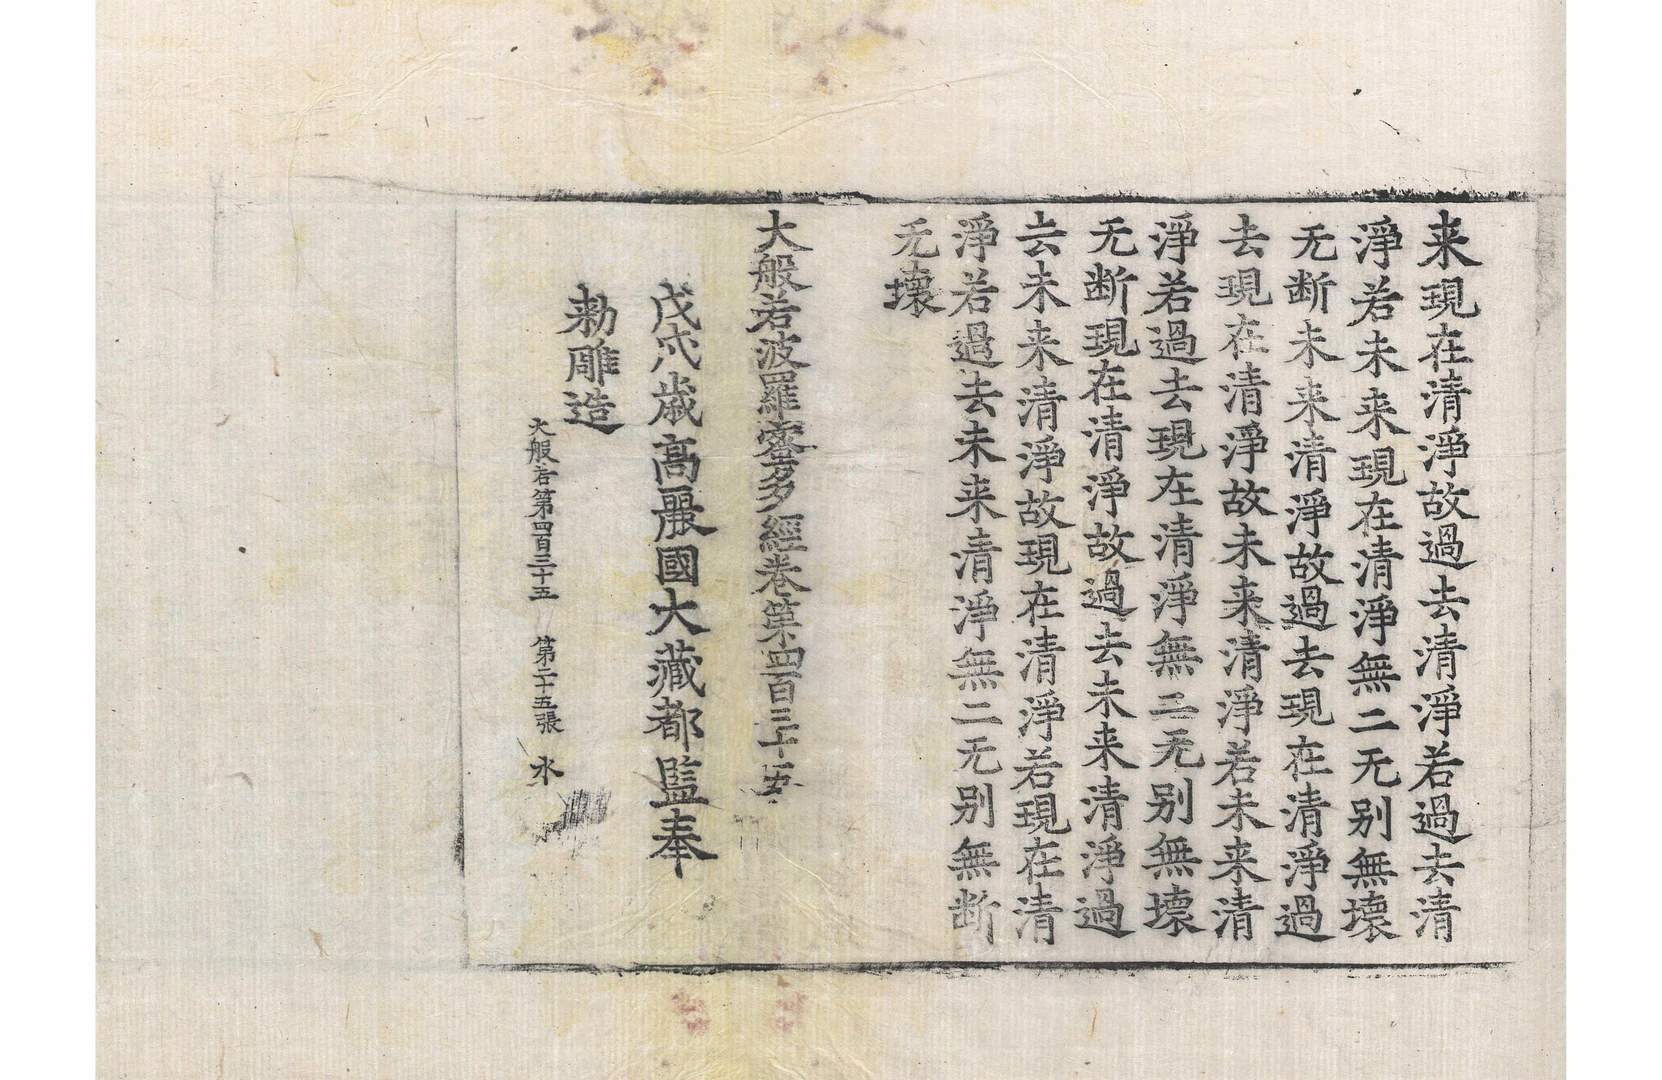 来現在清淨故過去清淨若過去清
淨若未来現在清淨無二无别無壞
无断未来清淨故過去現在清淨過
去現在清淨故未来清淨若未来清
淨若過去現在清淨無二无别無壞
无断現在清淨故過去未来清淨過
去未来清淨故現在清淨若現在清
淨若過去未来清淨無二无别無断
无壞
大般若波羅蜜多經卷第四百三十五
戊戌歳高麗國大藏都監奉
勅雕造
大般若第四百三十五 第二十五張 水